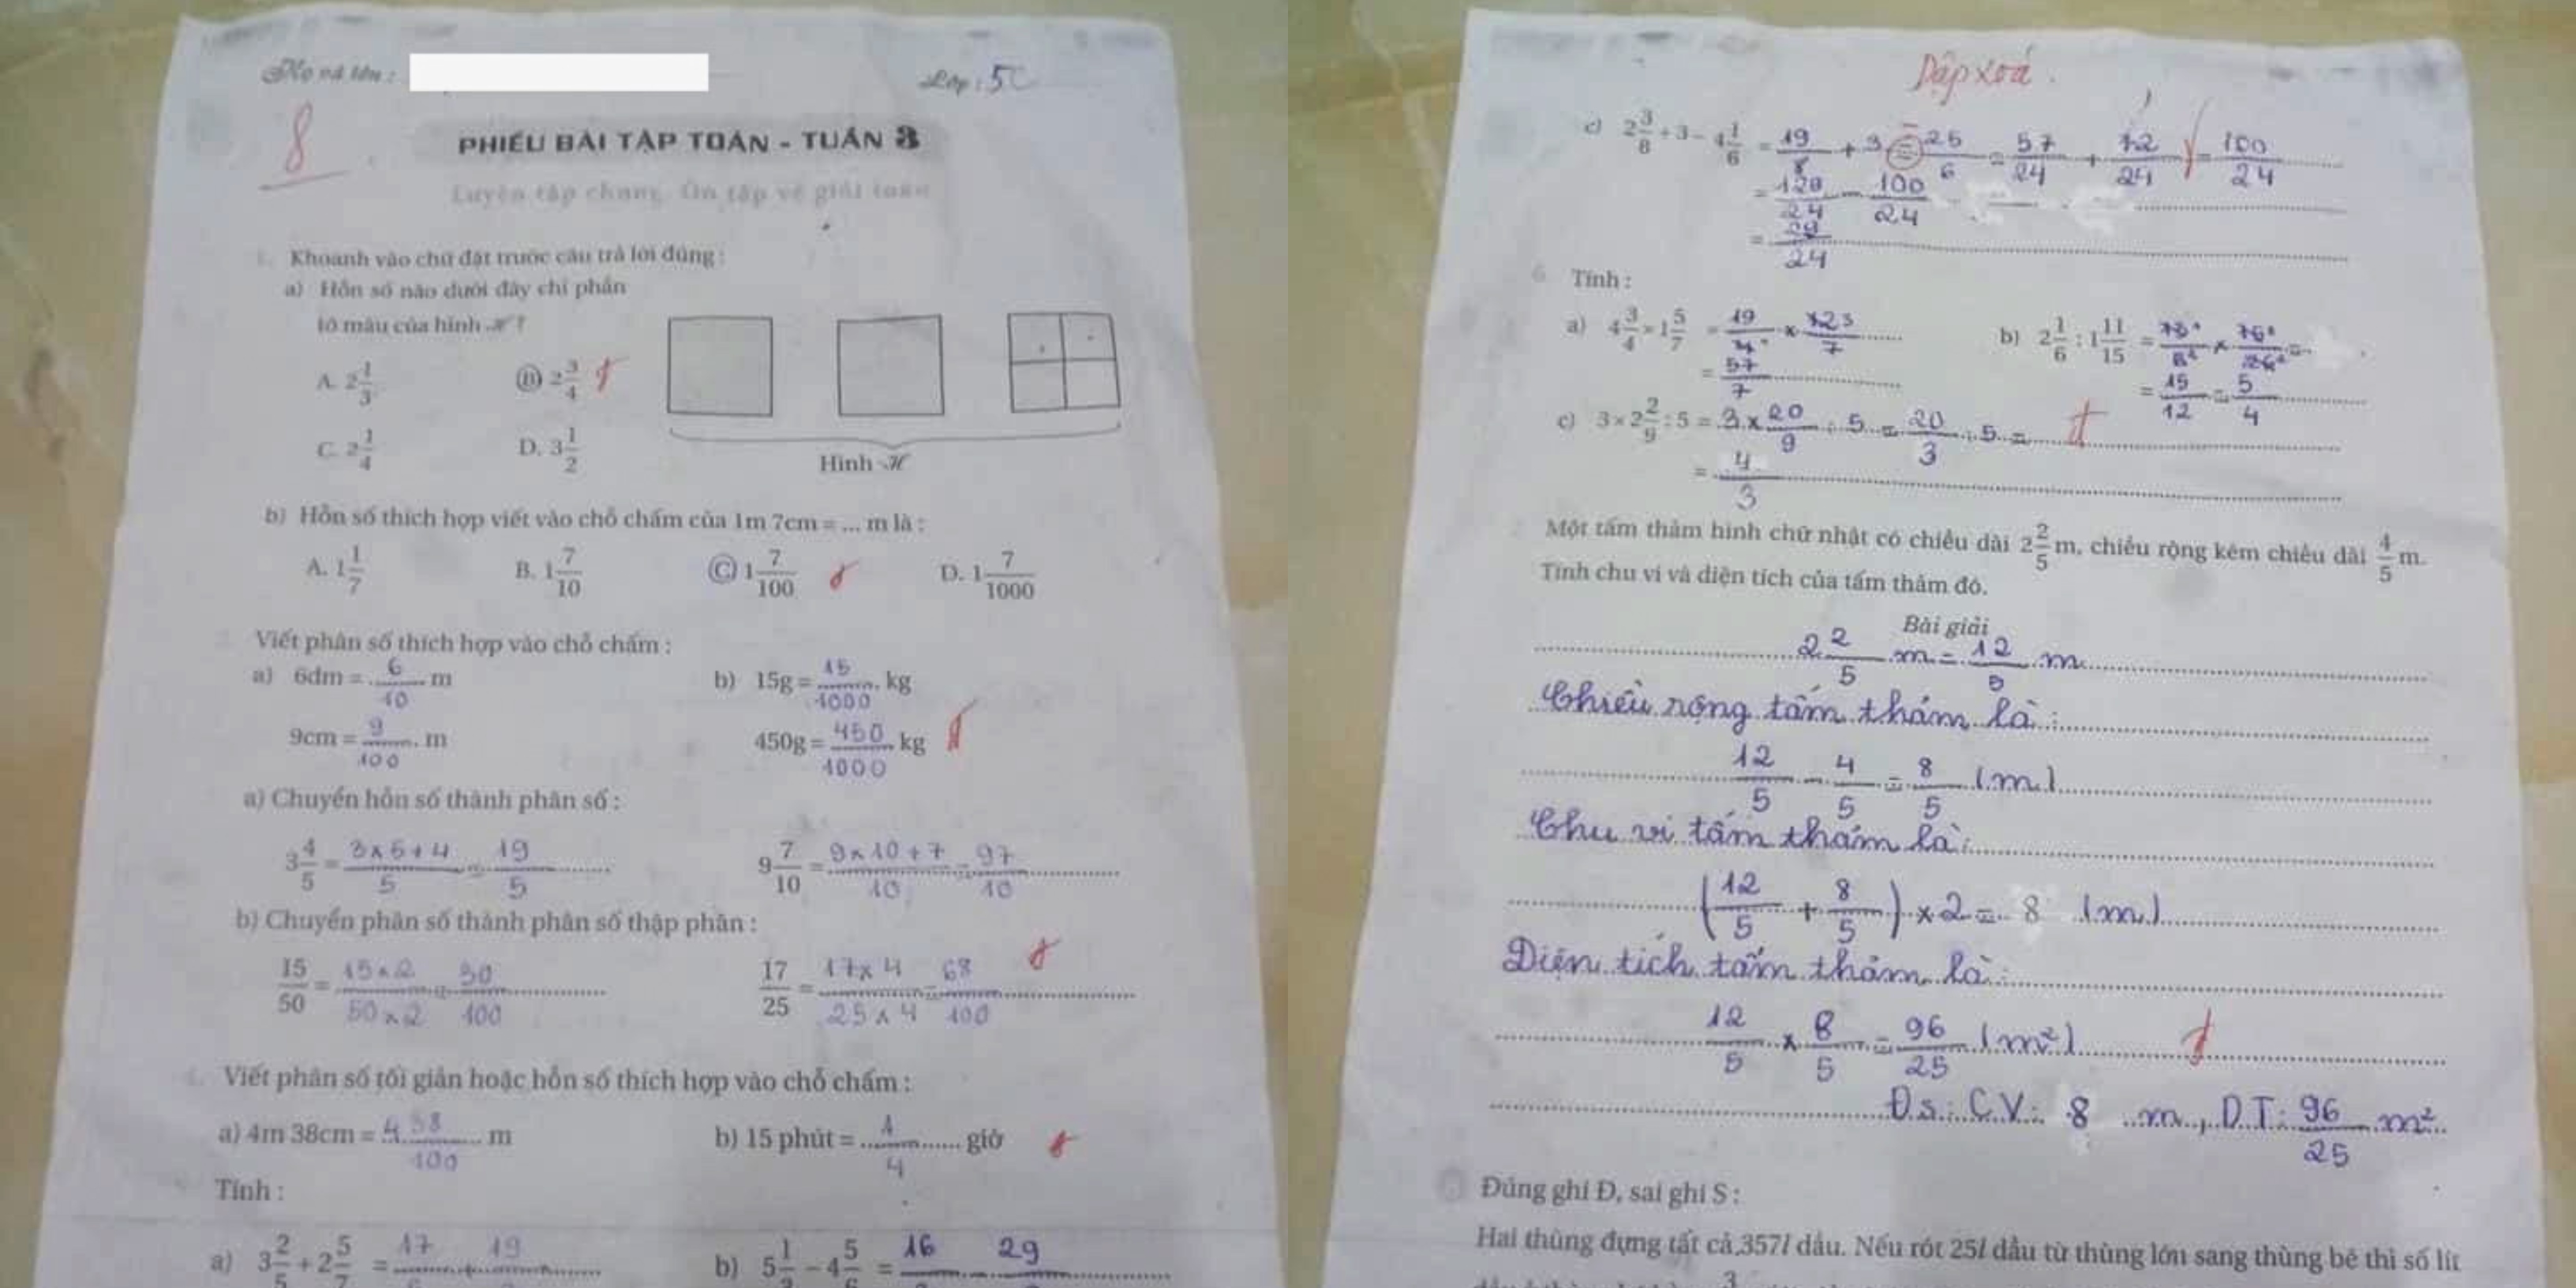 Họ và tên :
Lớp : 5C
8
PHIẾU BÀI TẬP TOÁN - TUẦN 3
Luyện tập chung. Ôn tập về giải toán
1. Khoanh vào chữ đặt trước câu trả lời đúng :
a) Hỗn số nào dưới đây chỉ phần
tô màu của hình ℋ ?
A. 2 1/3 B 2 3/4
C. 2 1/4 D. 3 1/2
Hình ℋ
b) Hỗn số thích hợp viết vào chỗ chấm của 1m 7cm = ... m là :
A. 1 1/7 B. 1 7/10 C 1 7/100 D. 1 7/1000
Viết phân số thích hợp vào chỗ chấm :
a) 6dm = 6/10 m b) 15g = 15/1000 kg
9cm = 9/100 m 450g = 450/1000 kg
a) Chuyển hỗn số thành phân số :
3 4/5 = 3x5+4/5 = 19/5 9 7/10 = 9x10+7/10 = 97/10
b) Chuyển phân số thành phân số thập phân :
15/50 = 15x2/50x2 = 30/100 17/25 = 17x4/25x4 = 68/100
4. Viết phân số tối giản hoặc hỗn số thích hợp vào chỗ chấm :
a) 4m 38cm = 4 38/100 m b) 15 phút = 1/4 giờ
Tính :
a) 3 2/5 + 2 5/7 = 17 + 19 b) 5 1/3 - 4 5/6 = 16 29
Dập xoá.
c) 2 3/8 + 3 - 4 1/6 = 19/8 + 3 = 25/6 = 57/24 + 72/24 = 100/24
= 129/24 - 100/24
= 29/24
6 Tính :
a) 4 3/4 × 1 5/7 = 19/4 x 12 3/7 b) 2 1/6 : 1 11/15 = 13/6 x 15/26 =
= 57/7 = 15/12 = 5/4
c) 3 × 2 2/9 : 5 = 3 x 20/9 : 5 = 20/3 : 5 =
= 4/3
Một tấm thảm hình chữ nhật có chiều dài 2 2/5 m, chiều rộng kém chiều dài 4/5 m.
Tính chu vi và diện tích của tấm thảm đó.
Bài giải
2 2/5 m = 12/5 m
Chiều rộng tấm thảm là :
12/5 - 4/5 = 8/5 (m)
Chu vi tấm thảm là :
(12/5 + 8/5) x 2 = 8 (m)
Diện tích tấm thảm là :
12/5 x 8/5 = 96/25 (m²)
Đ.s : C.V : 8 m, D.T : 96/25 m²
Đúng ghi Đ, sai ghi S :
Hai thùng đựng tất cả 357l dầu. Nếu rót 25l dầu từ thùng lớn sang thùng bé thì số lít